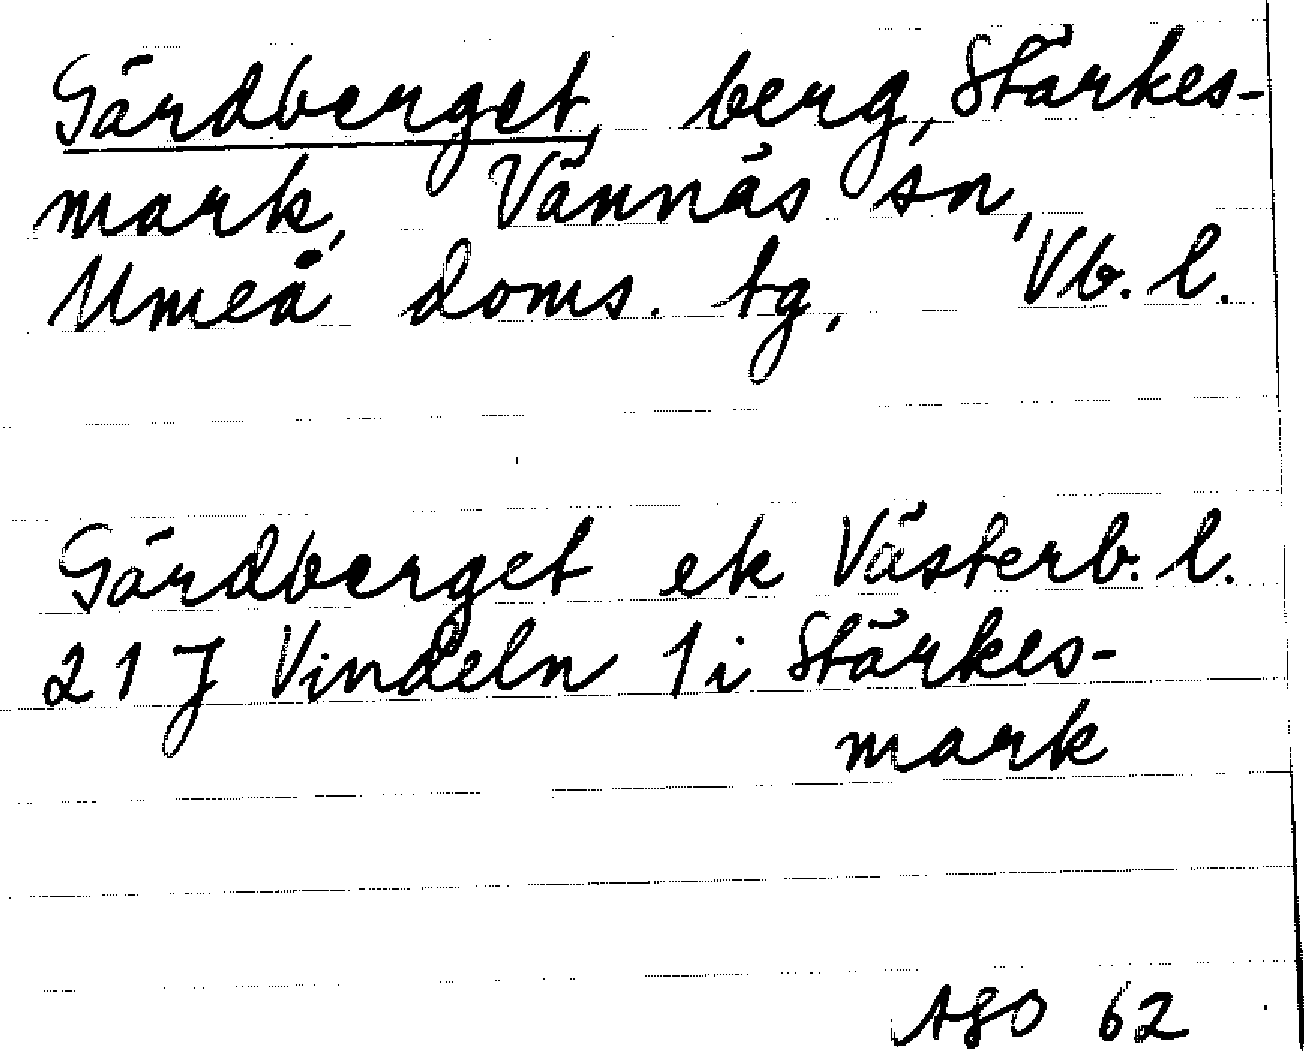 Gärdberget, berg, Stärkes-
mark, Vännäs sn,
Umeå doms. tg, Vb. l.
Gärdberget ek Västerb. l.
21 J Vindeln 1 i Stärkes-
mark
ASO 62